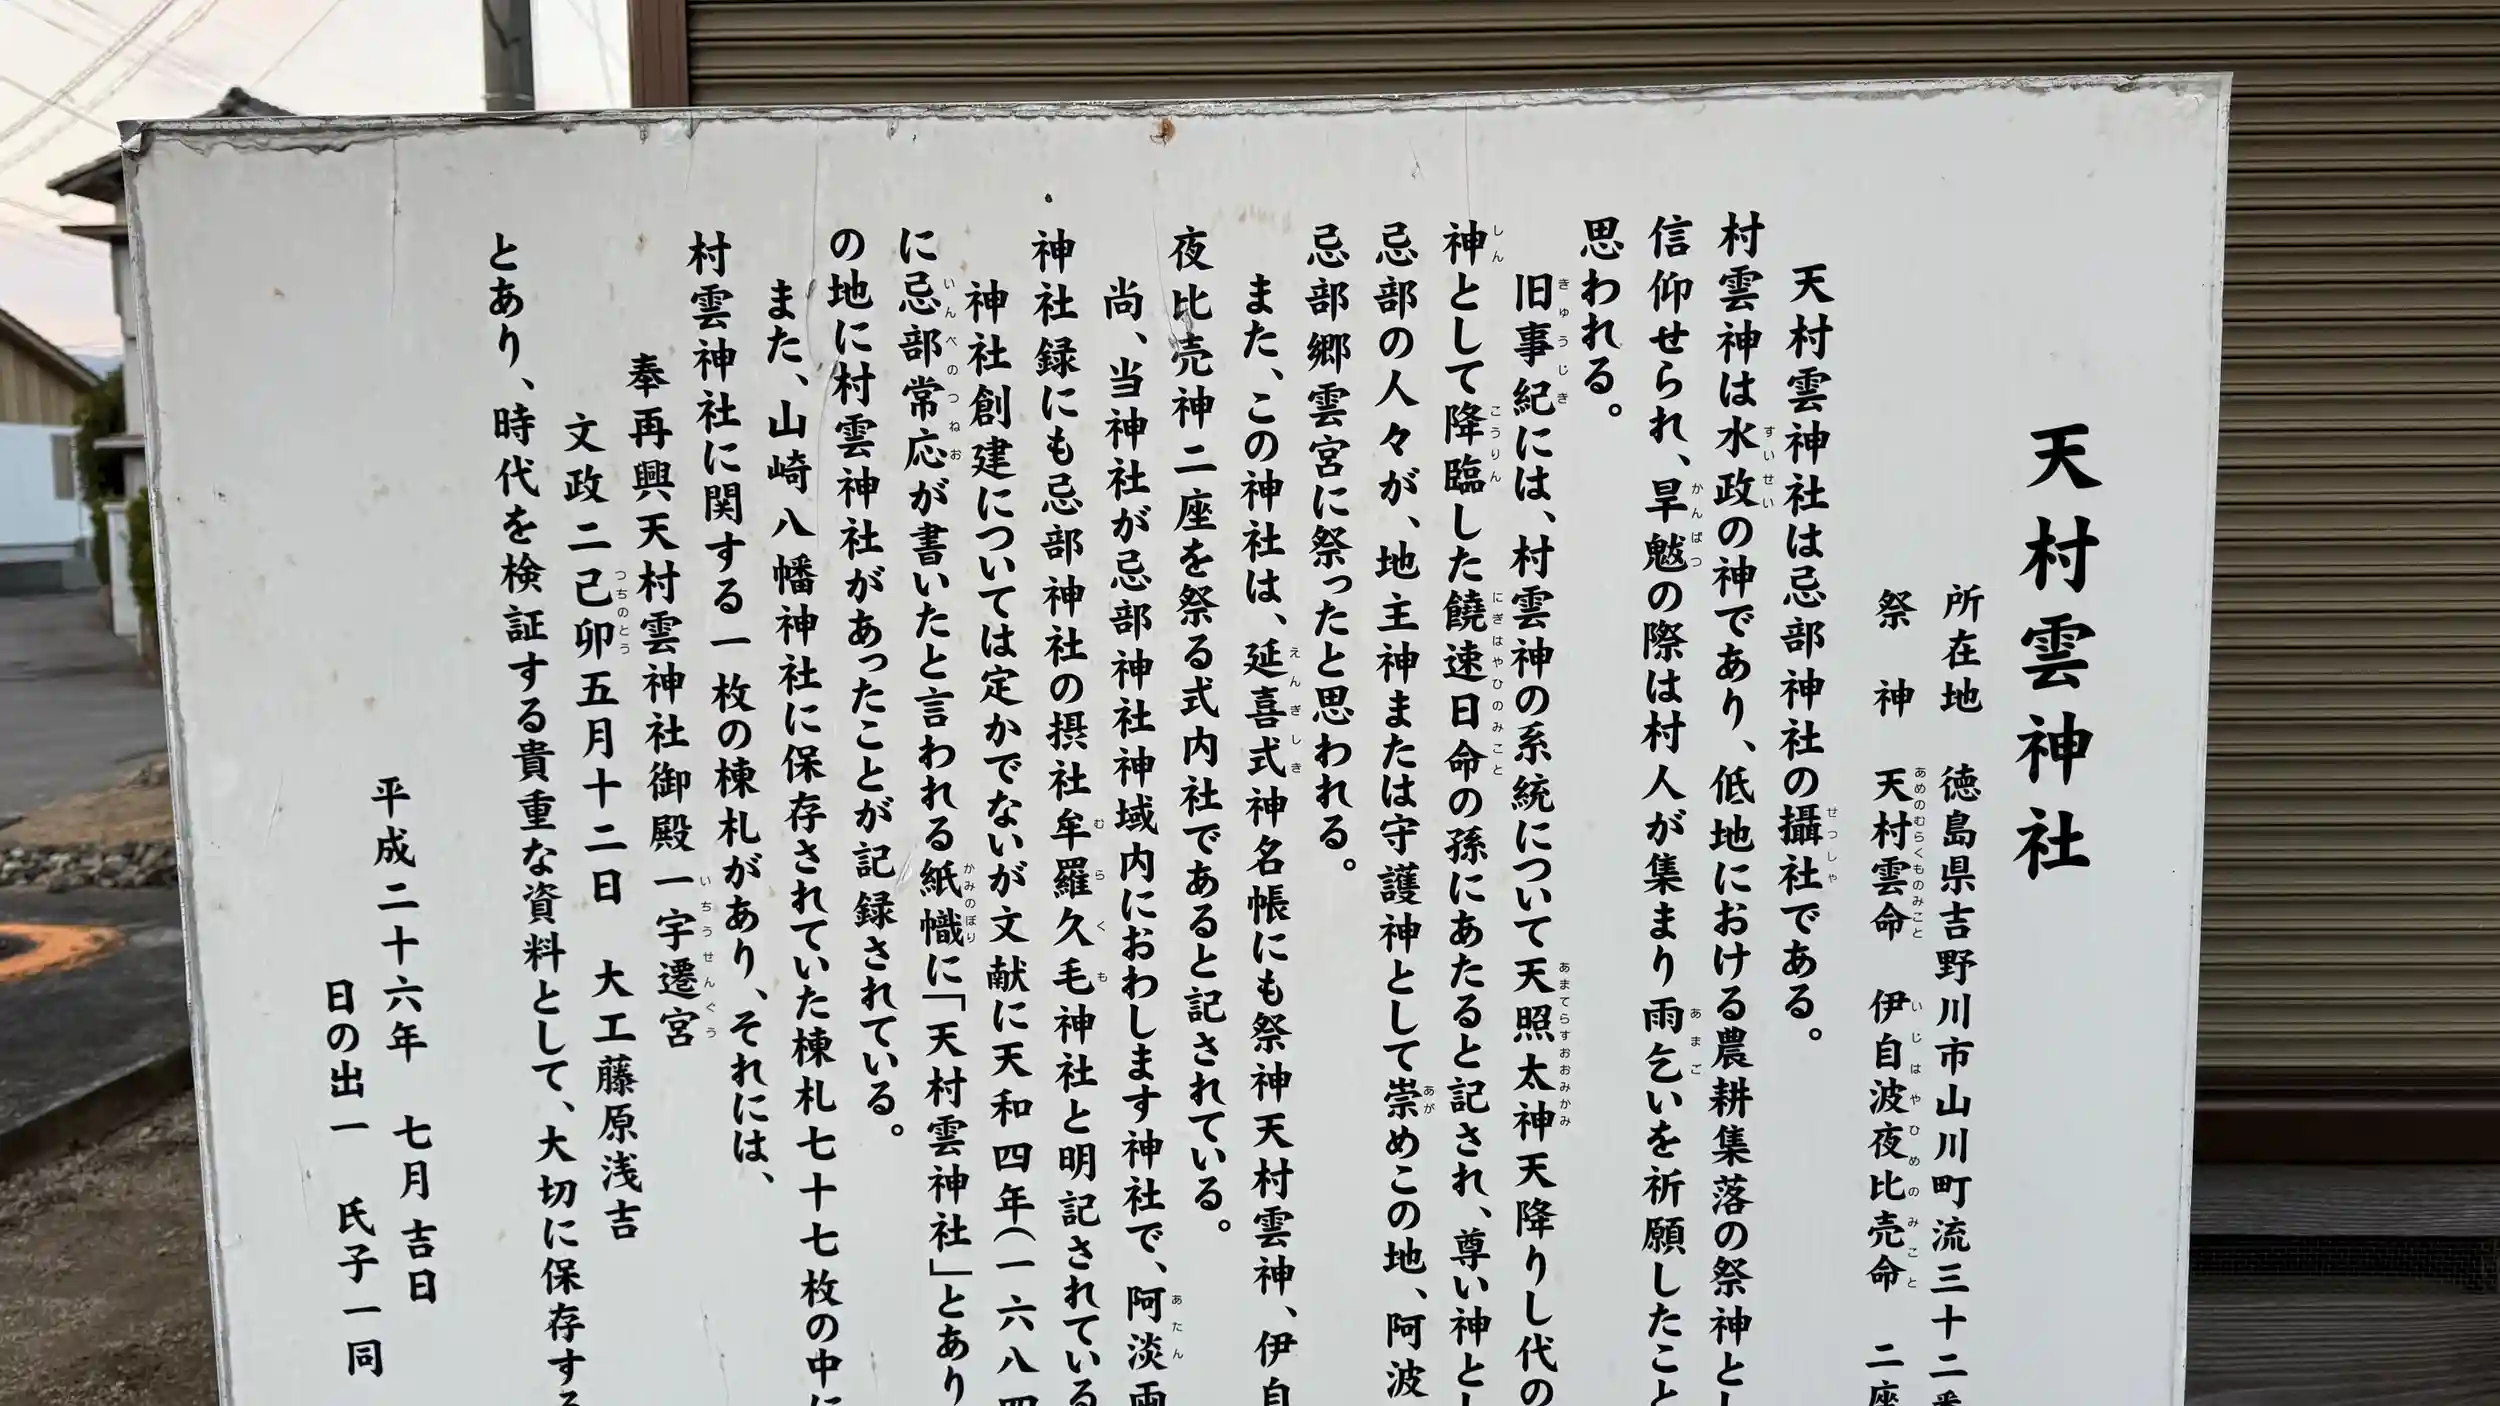 天村雲神社
所在地 徳島県吉野川市山川町流三十二番
祭神 天村雲命 伊自波夜比売命 二座
あめのむらくものみこと いじはやひめのみこと
天村雲神社は忌部神社の攝社である。
せつしゃ
村雲神は水政の神であり、低地における農耕集落の祭神とし
すいせい
信仰せられ、旱魃の際は村人が集まり雨乞いを祈願したこと
かんばつ あまご
思われる。
旧事紀には、村雲神の系統について天照太神天降りし代の
きゅうじき あまてらすおおみかみ
神として降臨した饒速日命の孫にあたると記され、尊い神とし
しん こうりん にぎはやひのみこと
忌部の人々が、地主神または守護神として崇めこの地、阿波
あが
忌部郷雲宮に祭ったと思われる。
また、この神社は、延喜式神名帳にも祭神天村雲神、伊自
えんぎしき
夜比売神二座を祭る式内社であると記されている。
尚、当神社が忌部神社神域内におわします神社で、阿淡両
あたん
神社録にも忌部神社の摂社牟羅久毛神社と明記されている
むらくも
神社創建については定かでないが文献に天和四年(一六八四
に忌部常応が書いたと言われる紙幟に「天村雲神社」とあり
いんべのつねお かみのぼり
の地に村雲神社があったことが記録されている。
また、山崎八幡神社に保存されていた棟札七十七枚の中に
村雲神社に関する一枚の棟札があり、それには、
奉再興天村雲神社御殿一宇遷宮
いちうせんぐう
文政二己卯五月十二日 大工藤原浅吉
つちのとう
とあり、時代を検証する貴重な資料として、大切に保存する
平成二十六年 七月吉日
日の出一 氏子一同